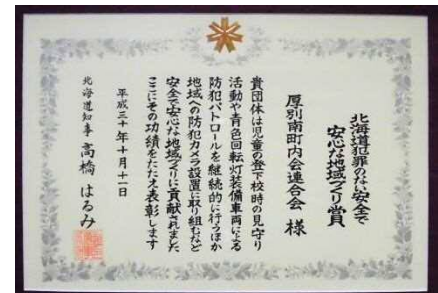 北海道犯罪のない安全で
安心な地域づくり賞
厚別南町内会連合会 様
貴団体は児童の登下校時の見守り
活動や青色回転灯装備車両による
防犯パトロールを継続的に行うほか
地域への防犯カメラ設置に取り組むなど
安全で安心な地域づくりに貢献されました
ここにその功績をたたえ表彰します
平成三十年十月十一日
北海道知事 高橋 はるみ